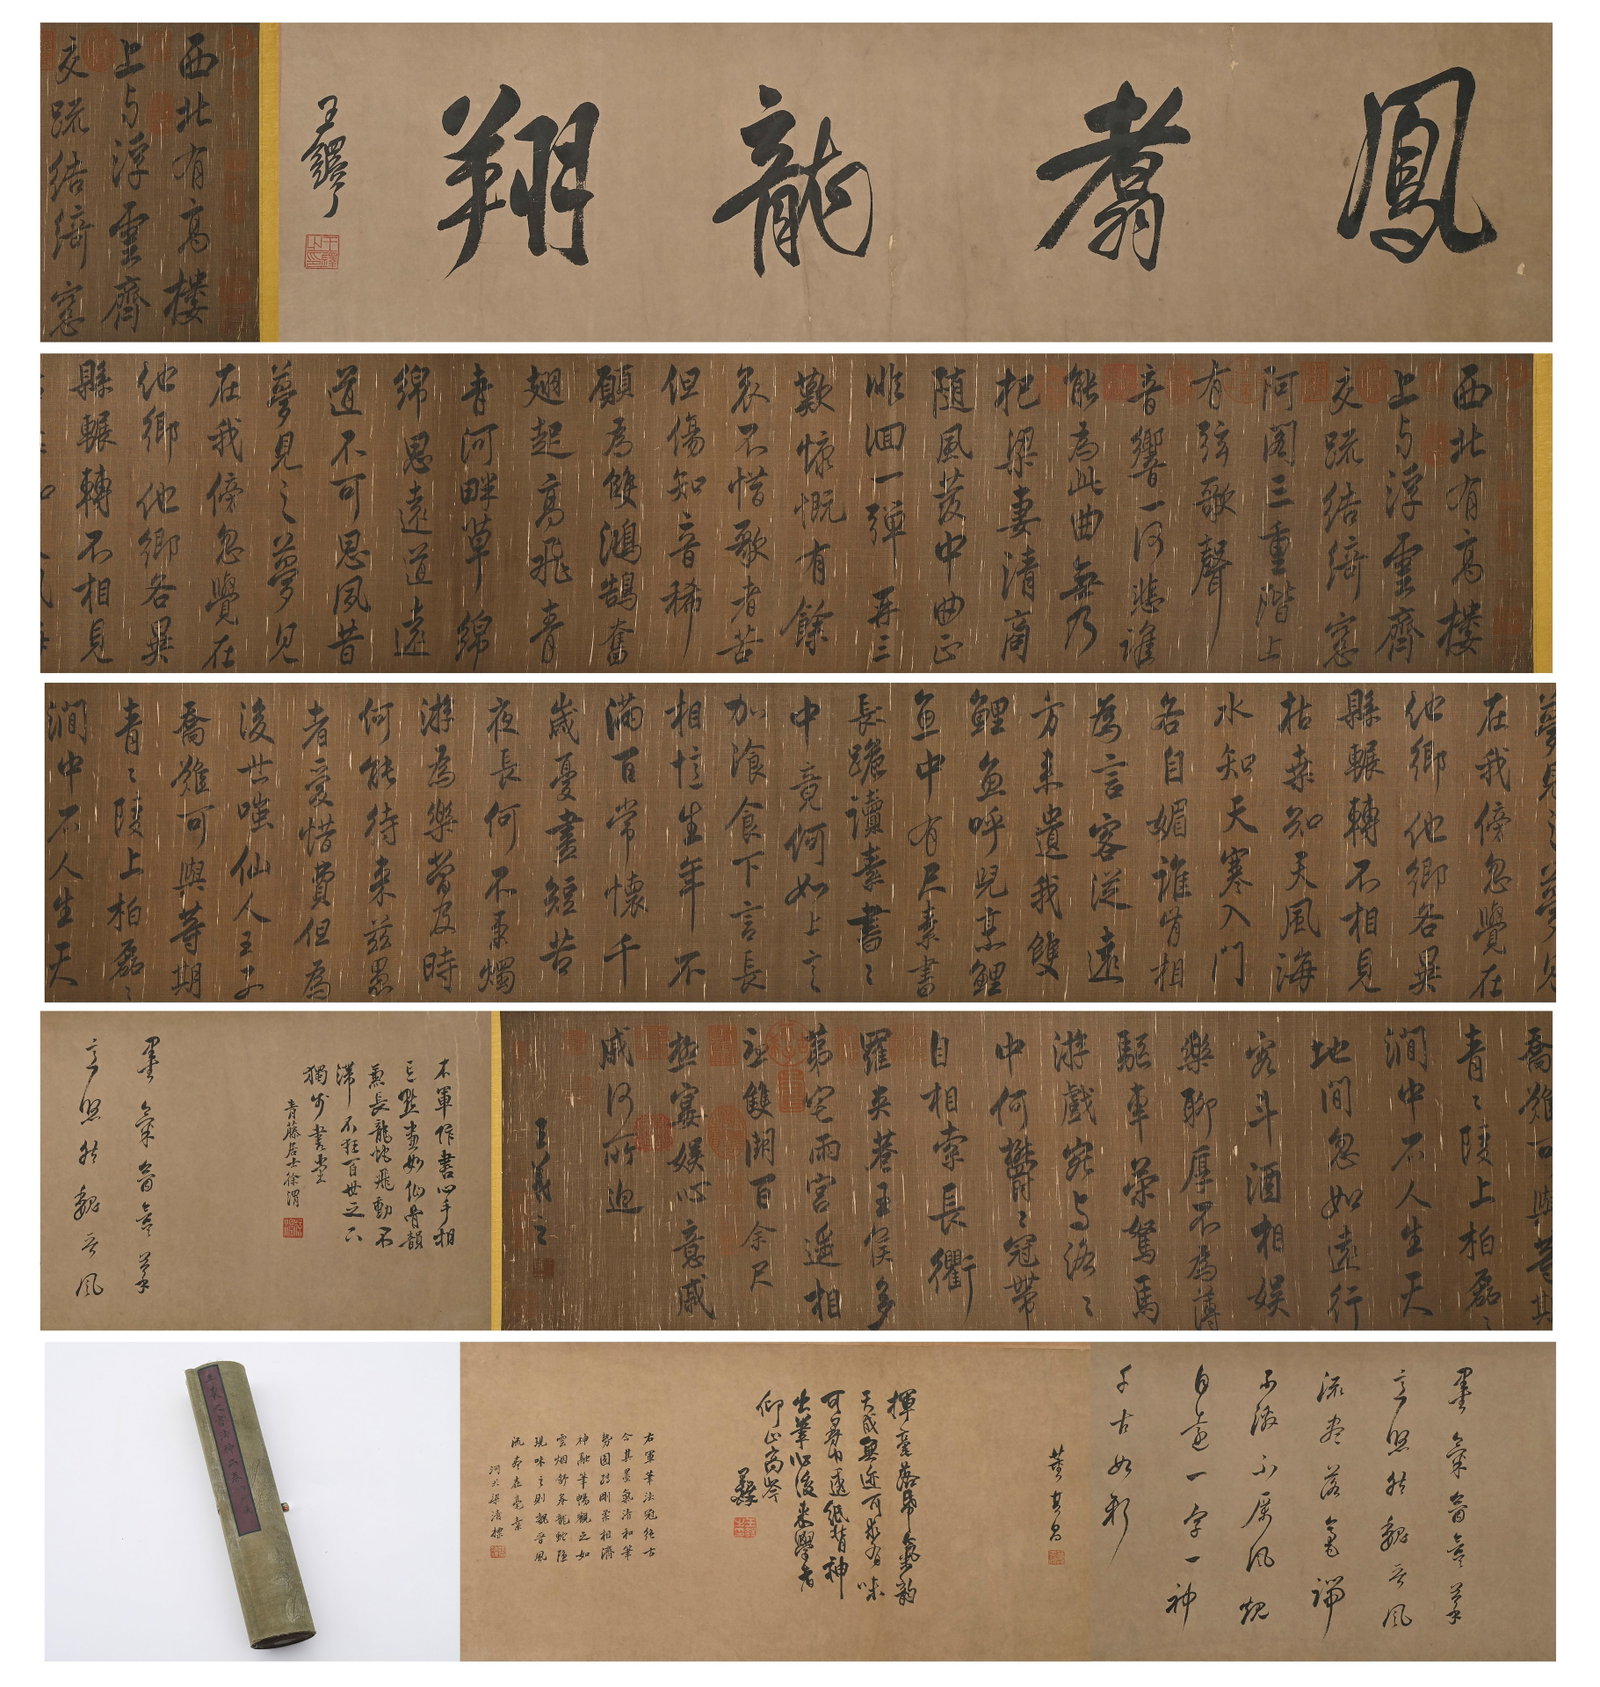 鳳翥龍翔
王鐸
西北有高樓
上与浮雲齊
交疏結綺窓
西北有高樓
上与浮雲齊
交疏結綺窓
阿閣三重階上
有弦歌聲
音響一何悲誰
能為此曲無乃
杞梁妻清商
随風發中曲正
徘徊一彈再三
歎慷慨有餘
哀不惜歌者苦
但傷知音稀
願為雙鴻鵠奮
翅起高飛青
青河畔草綿
綿思遠道遠
道不可思夙昔
夢見之夢見
在我傍忽覺在
他鄉他鄉各異
縣輾轉不相見
夢見之夢見
在我傍忽覺在
他鄉他鄉各異
縣輾轉不相見
枯桑知天風海
水知天寒入門
各自媚誰肯相
為言客從遠
方来遺我雙
鯉魚呼兒烹鯉
魚中有尺素書
長跪讀素書〻
中竟何如上言
加飡食下言長
相憶生年不
滿百常懷千
歲憂晝短苦
夜長何不秉燭
游為樂當及時
何能待来茲愚
者愛惜費但為
後世嗤仙人王子
喬難可與等期
青〻陵上柏磊〻
澗中石人生天
喬難可與等期
青〻陵上柏磊〻
澗中石人生天
地間忽如遠行
客斗酒相娛
樂聊厚不為薄
驅車策駑馬
游戲宛与洛〻
中何鬱〻冠帶
自相索長衢
羅夾巷王侯多
第宅兩宮遥相
望雙闕百余尺
極宴娛心意戚
戚何所迫
王羲之
右軍作書心手相
忘點畫如仙骨韻
氣長龍蛇飛動不
滯不狂百世之下
獨步書堂
青藤居士徐渭
墨氣含 筆
玄照 魏晉風
墨氣含 筆
玄照 魏晉風
流盡落無端
不激不厲風規
自遠一字一神
千古如新
董其昌
揮毫落帛氣韵
天成無迹可求有味
可尋力透紙背神
出筆心後来學者
仰止高岑
王鐸
右軍筆法冠絕古
今其墨氣清和筆
勢圓勁剛柔相濟
神融筆暢觀之如
雲烟舒卷龍蛇隱
現味之則魏晉風
流盡在毫素
河北梁清標